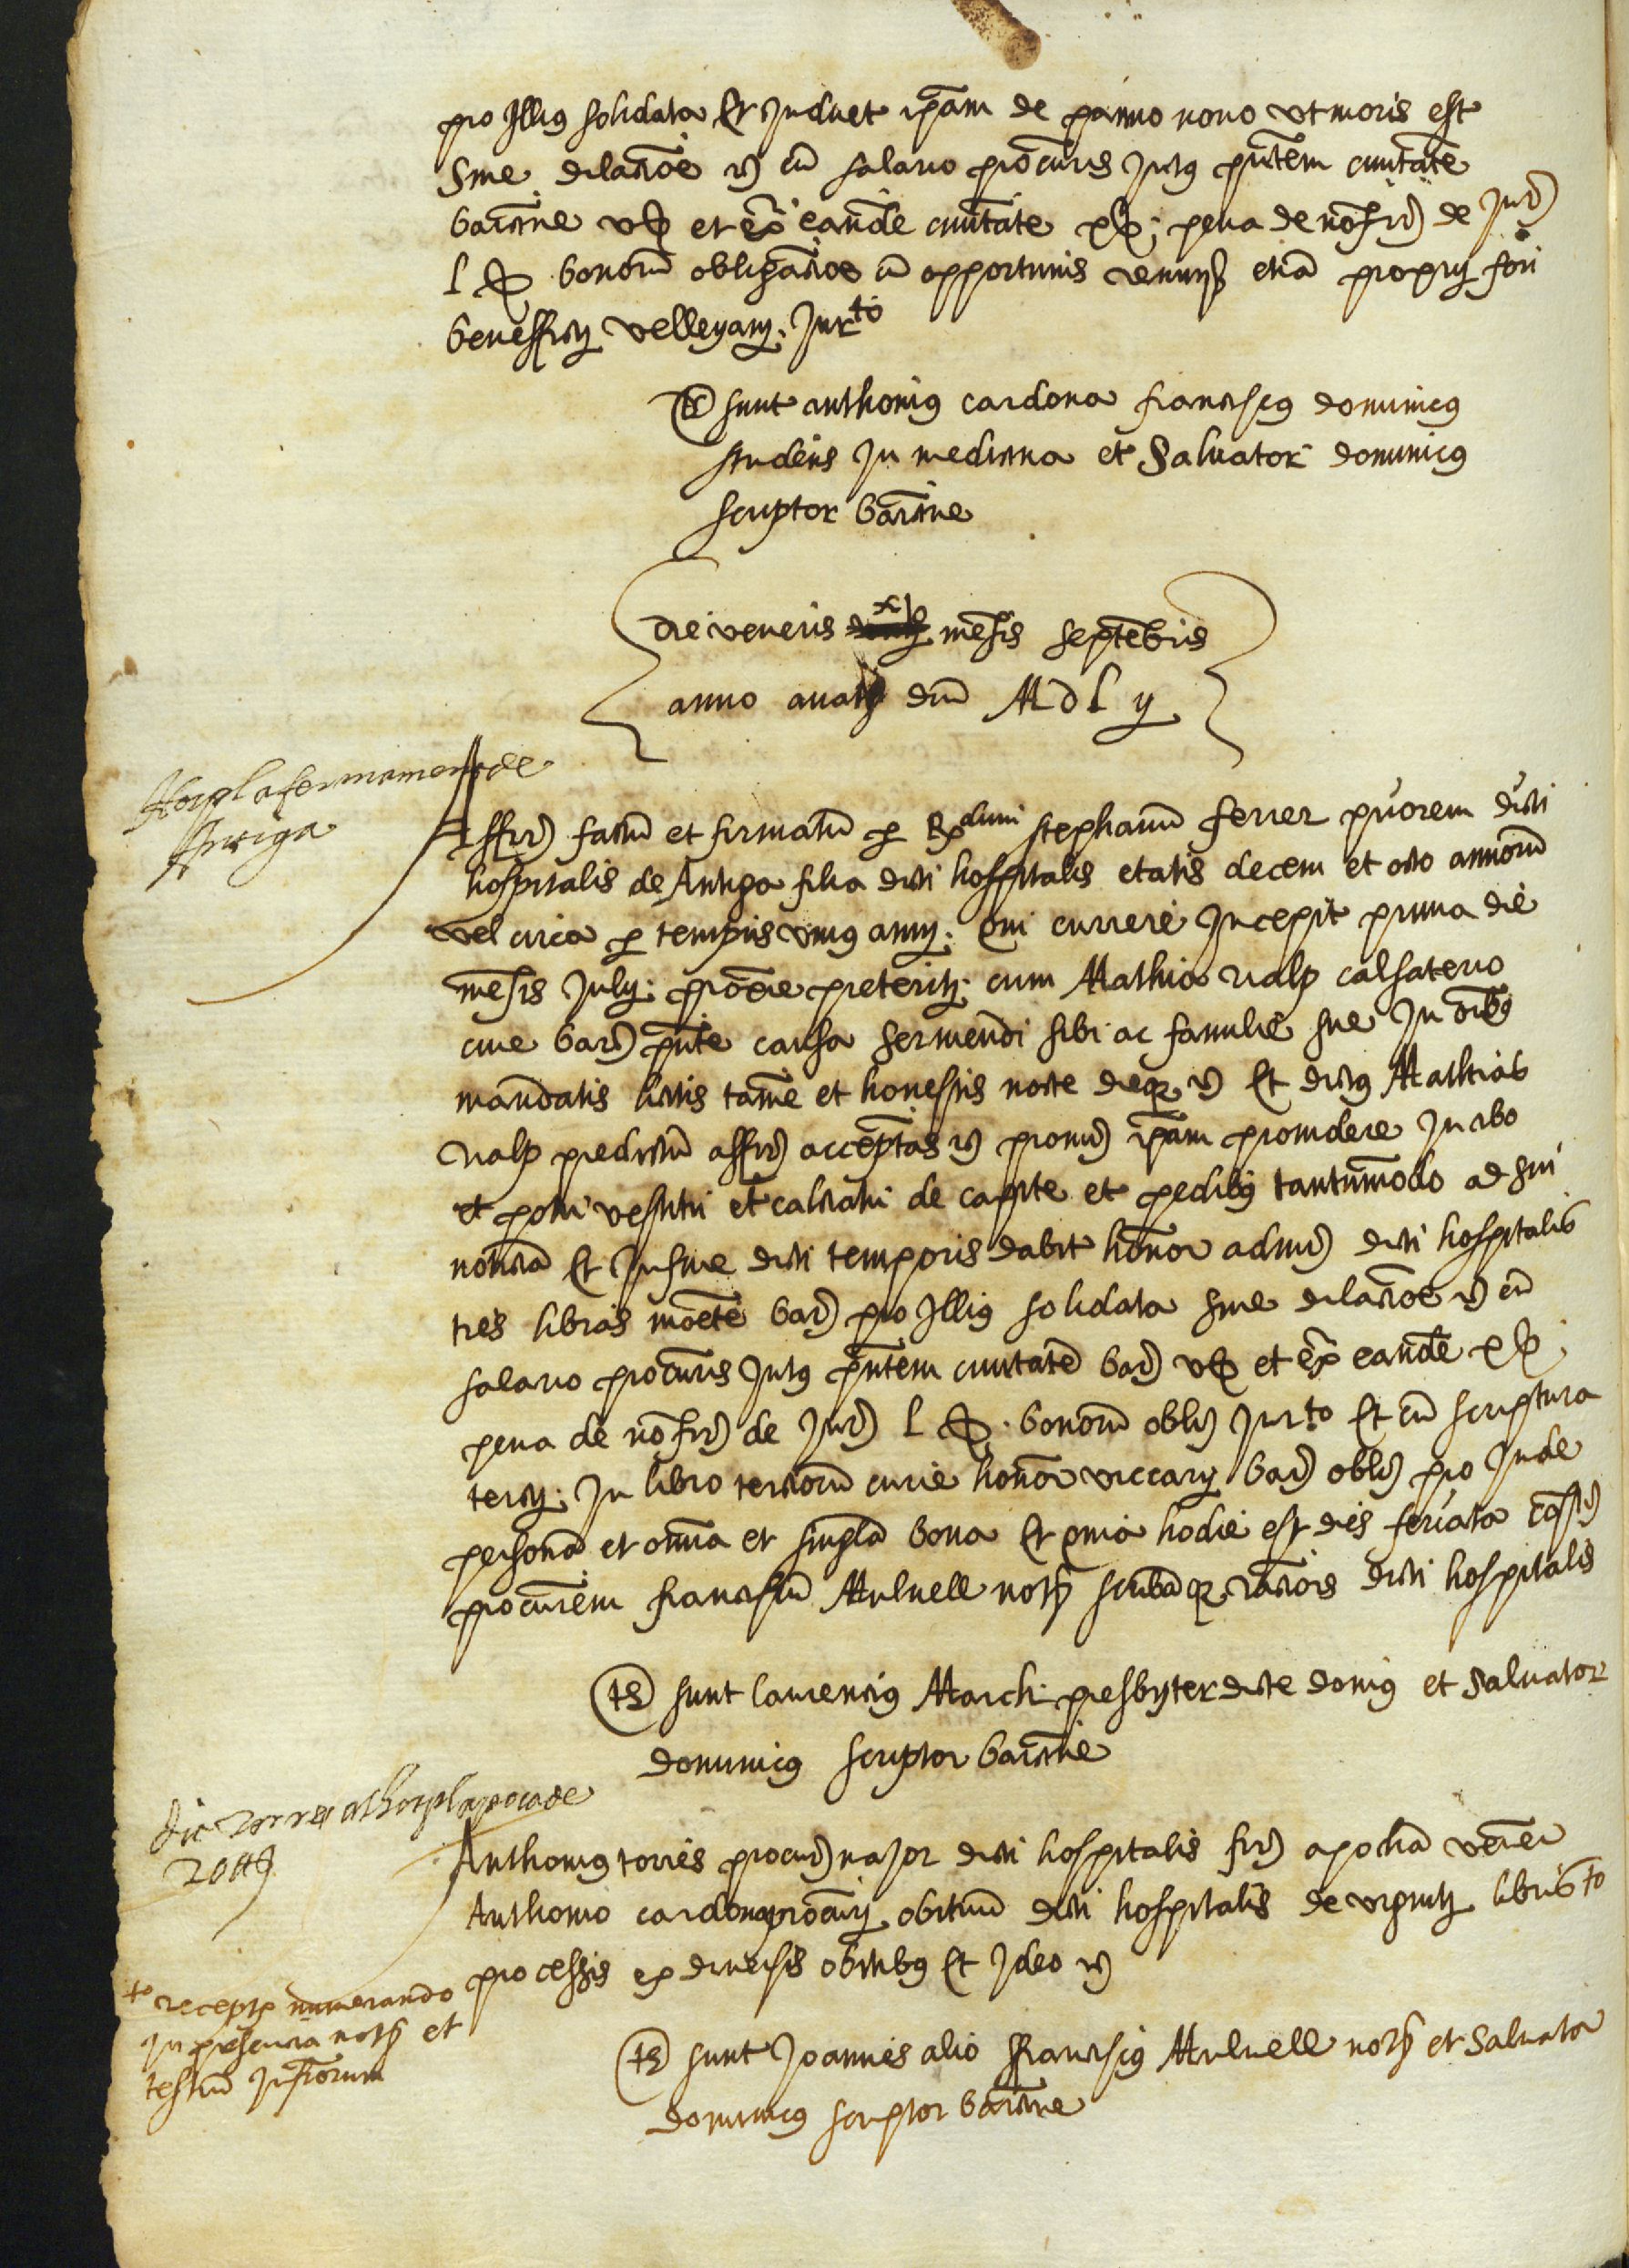 pro Illius solidata Et Induet ipam de panno novo ut moris est
Sine dilacioe &c cu salario procuris Intus pntem civitate
barcine v ß et ex eande civitate x ß; pena de no fir) de Jur)
l ß bonoru obligacioe cu opportunis renunijs etia proprij fori
beneffitij velleyani; Jurto
ts sunt anthonius cardona franciscus dominicus
studens In medicina et Salvator dominicus
scriptor barcine
die veneris xvj mesis septebris
anno a natte dni M D L ij
Hospl afermament de
Antiga
Affir) factu et firmatu p Rdum stephanu ferrer priorem dicti
hospitalis de Antiga filia dicti hospitalis etatis decem et octo annoru
vel circa p tempus unius anni; Qui currere Incepit prima die
mesis Julij; proxie preteriti; cum Mathia ralp calsaterio
cive bar) pnte causa serviendi sibi ac familie sue In oibus
mandatis licitis tame et honestis nocte dieq &c Et dictus Mathias
Ralp predictu affir) acceptas &c promi) ipam providere In cibo
et potu vestitu et calciatu de capite et pedibus tantumodo ad sui
noticia Et In fine dicti temporis dabit honor admi) dicti hospitalis
tres libras monete bar) pro Illius solidata sine dilacioe &c cu
salario procuris Intus pntem civitate bar) v ß et ex eande x ß
pena de no fir) de Jur) l ß. bonoru obli) Jurto Et cu scriptura
tercij; In libro tercioru curie honor viccarij bar) obli) pro Inde
persona et omia et singla bona Et quia hodie est dies feriata costi)
procurem franciscu Mulnell noty scribaq raciois dicti hospitalis
ts sunt laurencius March presbyter dicte domus et Salvator
dominicus scriptor barcine
dit torres al hospl apoca de
20 ₶
Anthonius torres procur) major dicti hospitalis fir) apocha vener
Anthonio cardona procuri obituu dicti hospitalis de viginti libris to
processis ex diversis obitibus Et Ideo &c
to receptis numerando
In presencia noty et
testiu Infrorum
ts sunt Joannes alio ffranciscus Mulnell noty et Salvator
dominicus scriptor barcine